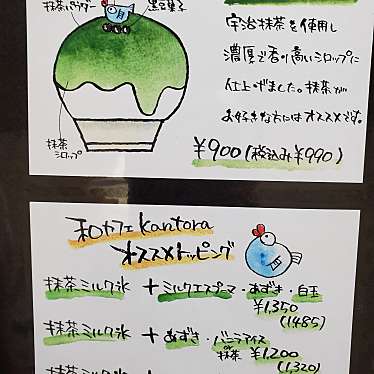 抹茶パウダー
黒豆菓子
宇治抹茶を使用し
濃厚で香り高いシロップに
仕上げました。抹茶が
お好きな方にはオススメです。
¥900(税込み¥990)
抹茶
シロップ
和カフェkantora
オススメトッピング
抹茶ミルク氷 + ミルクエスプーマ・あずき・白玉
¥1,350
(1485)
抹茶ミルク氷 + あずき・バニラアイス
or
抹茶
¥1,200
(1,320)
抹茶ミルク氷 +